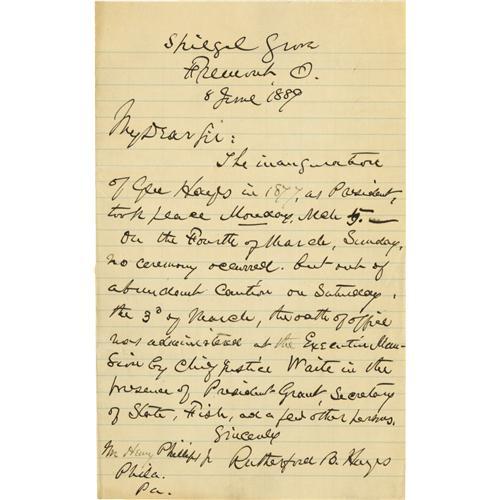 Spiegel Grove
Fremont O.
8 June 1889
My Dear Sir:
The inauguration
of Gen Hayes in 1877, as President,
took place Monday, Mch 5.—
On the Fourth of March, Sunday,
no ceremony occurred. But out of
abundant caution on Saturday,
the 3d of March, the oath of office
was administered at the Executive Man-
sion by Chief Justice Waite in the
presence of President Grant, Secretary
of State, Fish, and a few other persons.
Sincerely
Rutherford B. Hayes
Mr Henry Phillips Jr
Phila.
Pa.